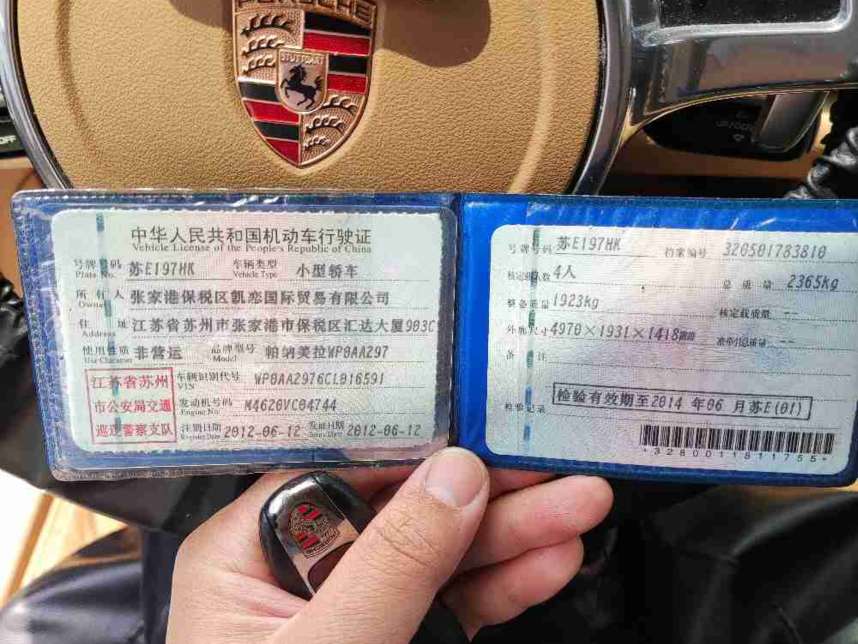 PORSCHE
STUTTGART
中华人民共和国机动车行驶证
Vehicle License of the People's Republic of China
号牌号码 苏E197HK 车辆类型 小型轿车
Plate No. Vehicle Type
所有人 张家港保税区凯恋国际贸易有限公司
Owner
住址 江苏省苏州市张家港市保税区汇达大厦903C
Address
使用性质 非营运 品牌型号 帕纳美拉WP0AA297
Use Character Model
江苏省苏州
市公安局交通
巡逻警察支队
车辆识别代号 WP0AA2976CL016591
VIN
发动机号码 M4620VC04744
Engine No.
注册日期 2012-06-12 发证日期 2012-06-12
Register Date Issue Date
号牌号码 苏E197HK 档案编号 320501783810
核定载人数 4人 总质量 2365kg
整备质量 1923kg 核定载质量 --
外廓尺寸 4970×1931×1418 准牵引总质量 --
备注
检验记录 检验有效期至2014年06月苏E(01)
*3280011811755*